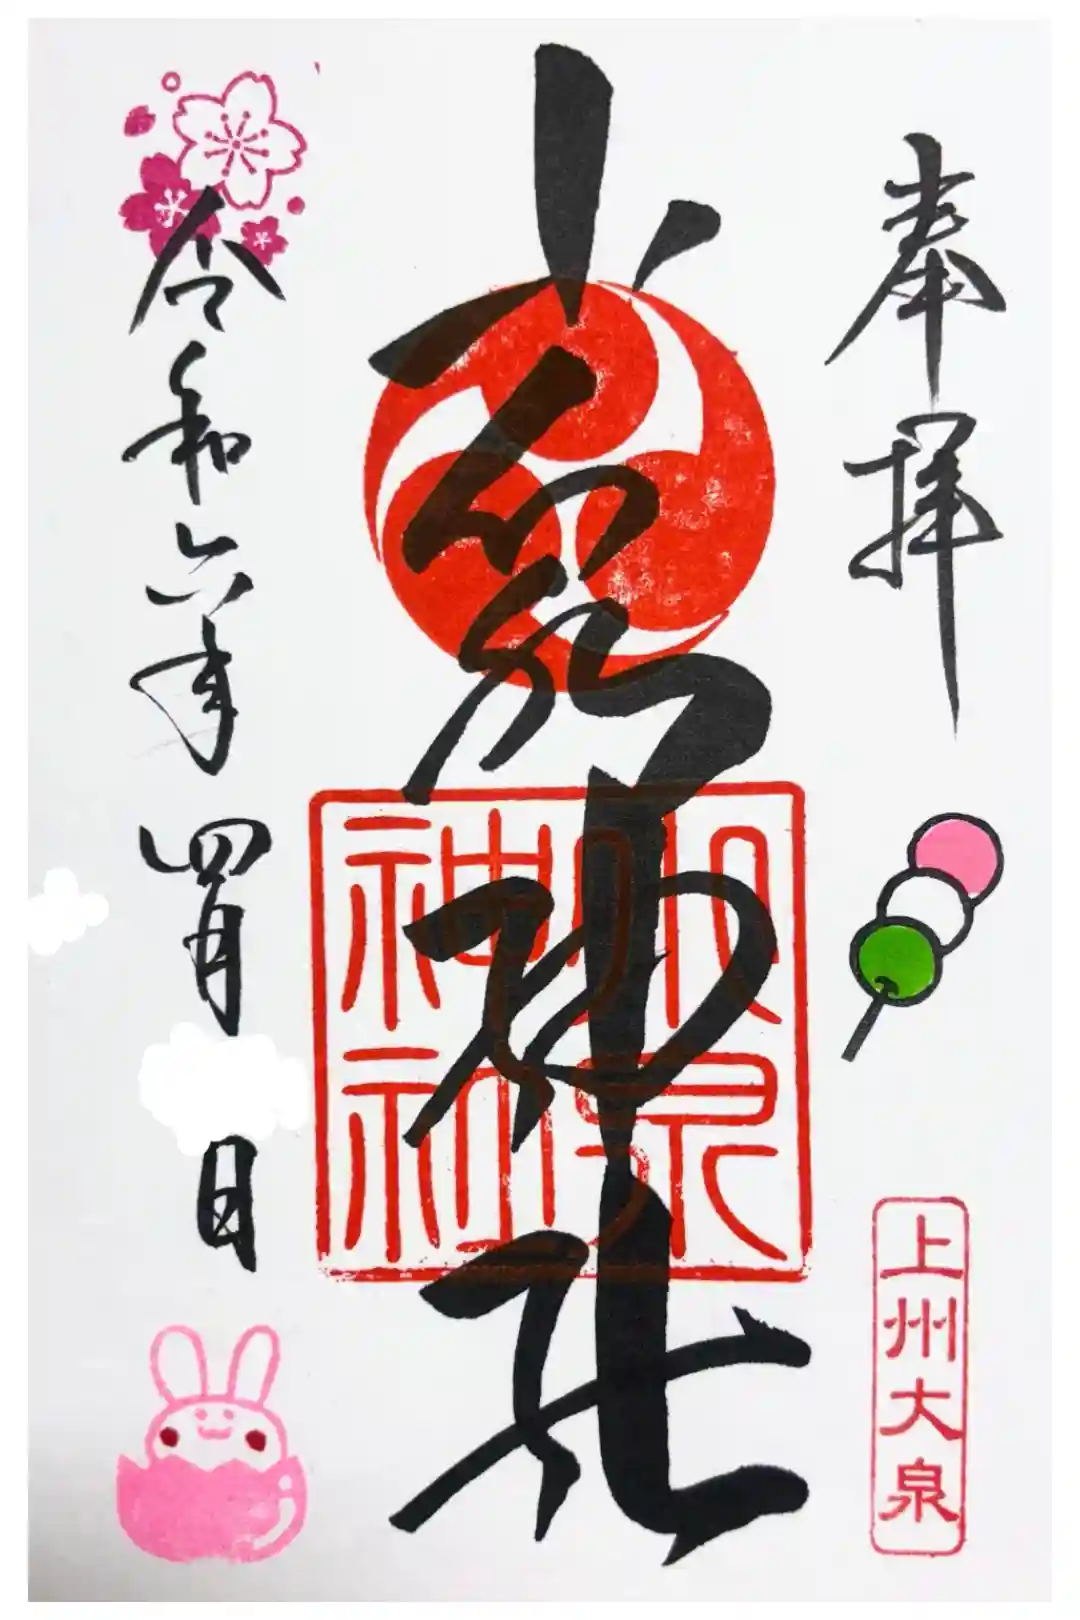 奉拝
上州大泉
小泉神社
小泉
神社
令和六年四月 日